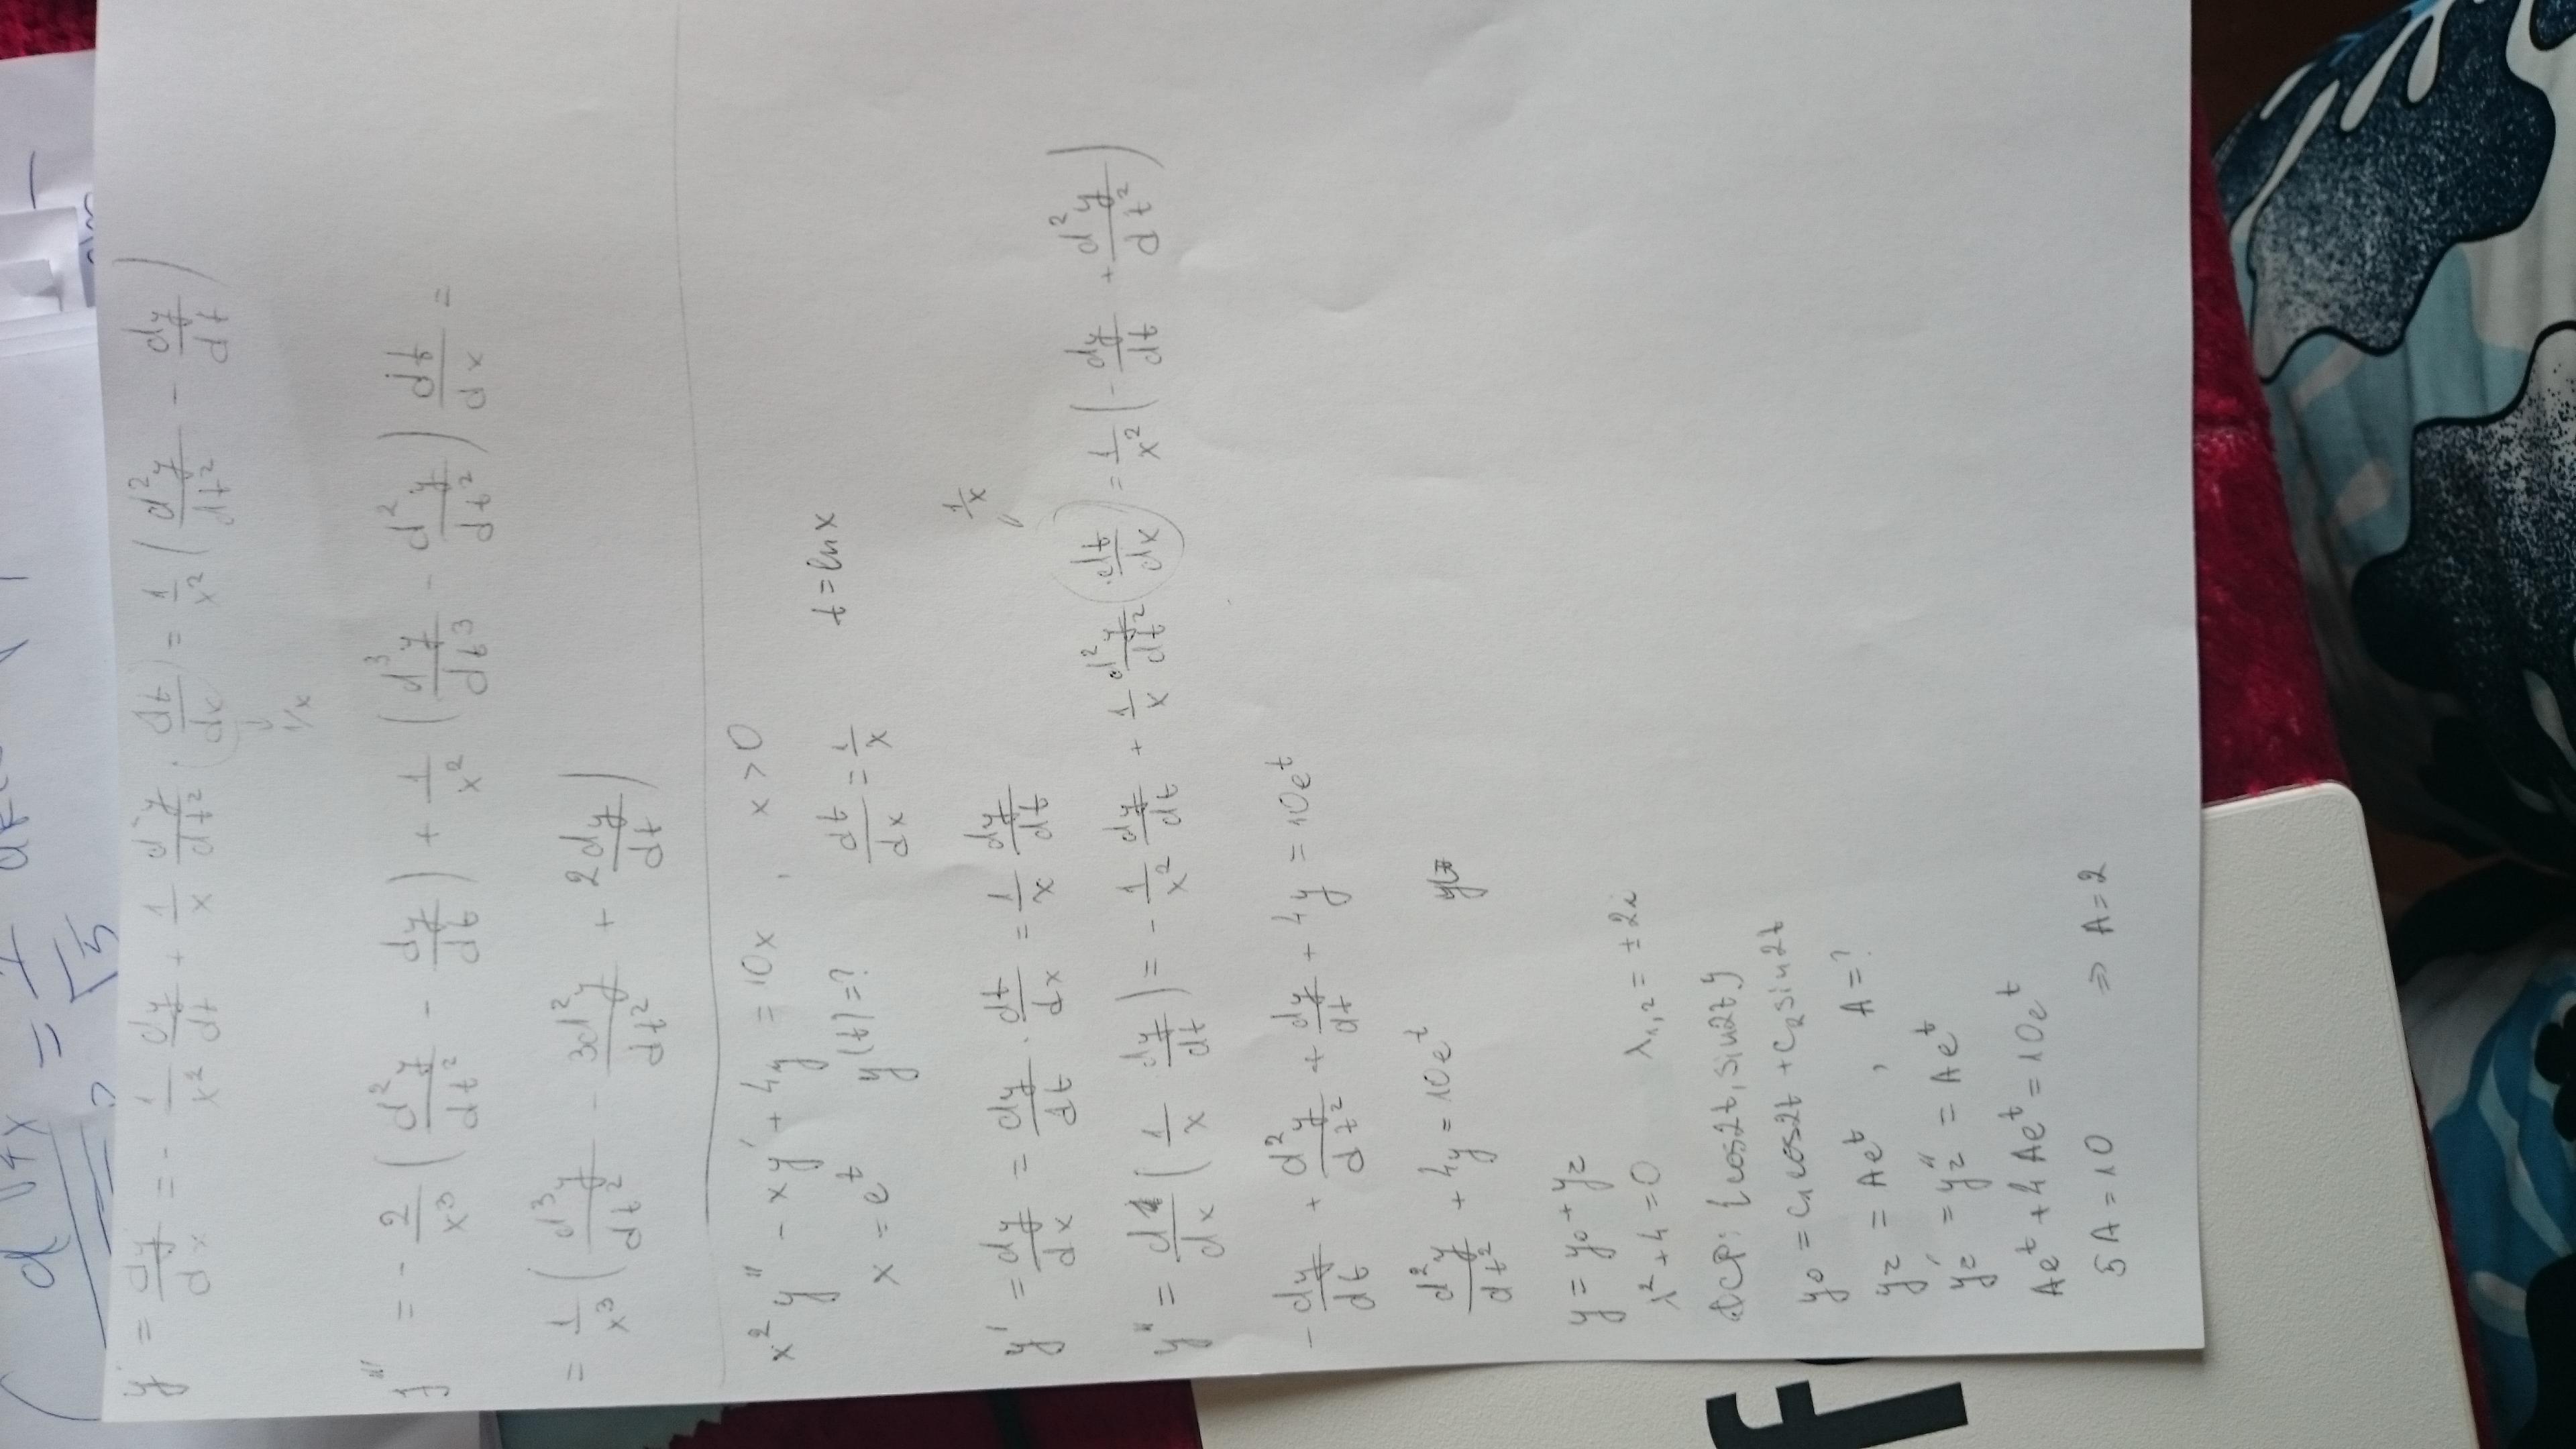 y' = dy/dx = - 1/x² dy/dt + 1/x d²y/dt² · (dt/dx) = 1/x² ( d²y/dt² - dy/dt )
1/x
y''' = - 2/x³ ( d²y/dt² - dy/dt ) + 1/x² ( d³y/dt³ - d²y/dt² ) dt/dx =
= 1/x³ ( d³y/dt² - 3d²y/dt² + 2 dy/dt )
x²y'' - xy' + 4y = 10x , x > 0
x = e^t y(t) = ? dt/dx = 1/x t = ln x
y' = dy/dx = dy/dt · dt/dx = 1/x dy/dt
1/x
y'' = d/dx ( 1/x dy/dt ) = - 1/x² dy/dt + 1/x d²y/dt² · (dt/dx) = 1/x² ( - dy/dt + d²y/dt² )
- dy/dt + d²y/dt² + dy/dt + 4y = 10e^t
d²y/dt² + 4y = 10e^t
y = y₀ + yz
λ² + 4 = 0 λ₁,₂ = ± 2i
{cos2t, sin2t}
y₀ = c₁cos2t + c₂sin2t
yz = Ae^t , A = ?
yz' = yz'' = Ae^t
Ae^t + 4Ae^t = 10e^t
5A = 10 ⇒ A = 2